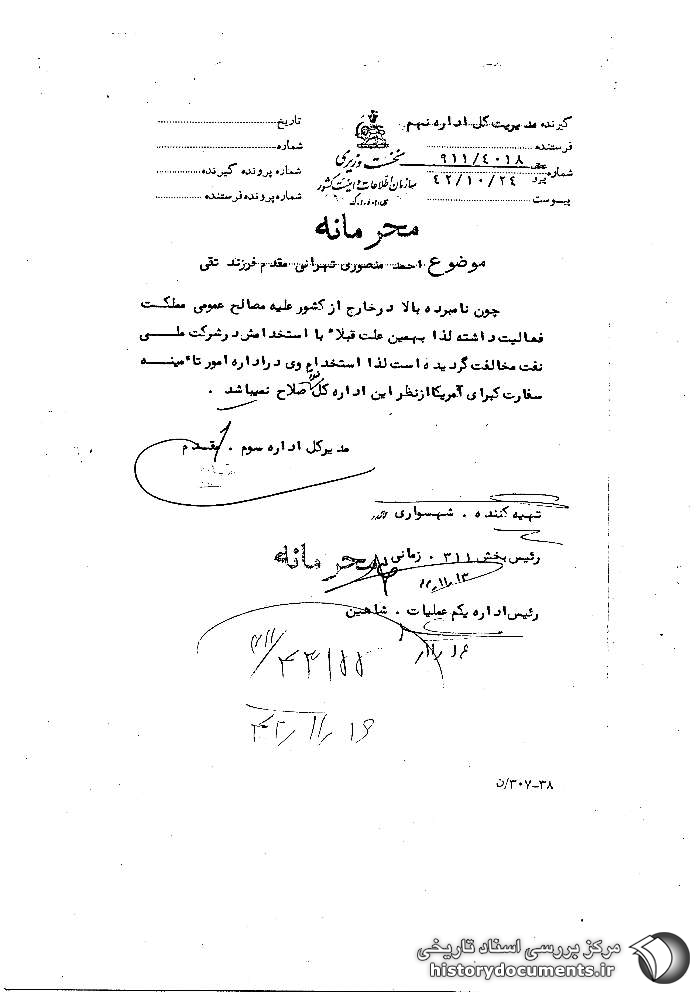 گیرنده مدیریت کل اداره نهم
تاریخ
فرستنده
شماره
نخست وزیری
شماره
۹۱۱/۴۰۱۸
۴۲/۱۰/۲۴
شماره پرونده گیرنده
سازمان اطلاعات و امنیت کشور
س.ا.و.ا.ک
پیوست
شماره پرونده فرستنده
محرمانه
موضوع احمد منصوری تهرانی مقدم فرزند تقی
چون نامبرده بالا در خارج از کشور علیه مصالح عمومی مملکت
فعالیت داشته لذا بهمین علت قبلاً با استخدامش در شرکت ملی
نفت مخالفت گردیده است لذا استخدام وی در اداره امور تأمینه
سفارت کبرای آمریکا از نظر این اداره کل صلاح نمیباشد .
مدیر کل اداره سوم . مقدم
تهیه کننده . شهسواری
رئیس بخش ۳۱۱ . زمانی
محرمانه
رئیس اداره یکم عملیات . شاهین
۳۸-۳۰۷/ن
مرکز بررسی اسناد تاریخی
historydocuments.ir